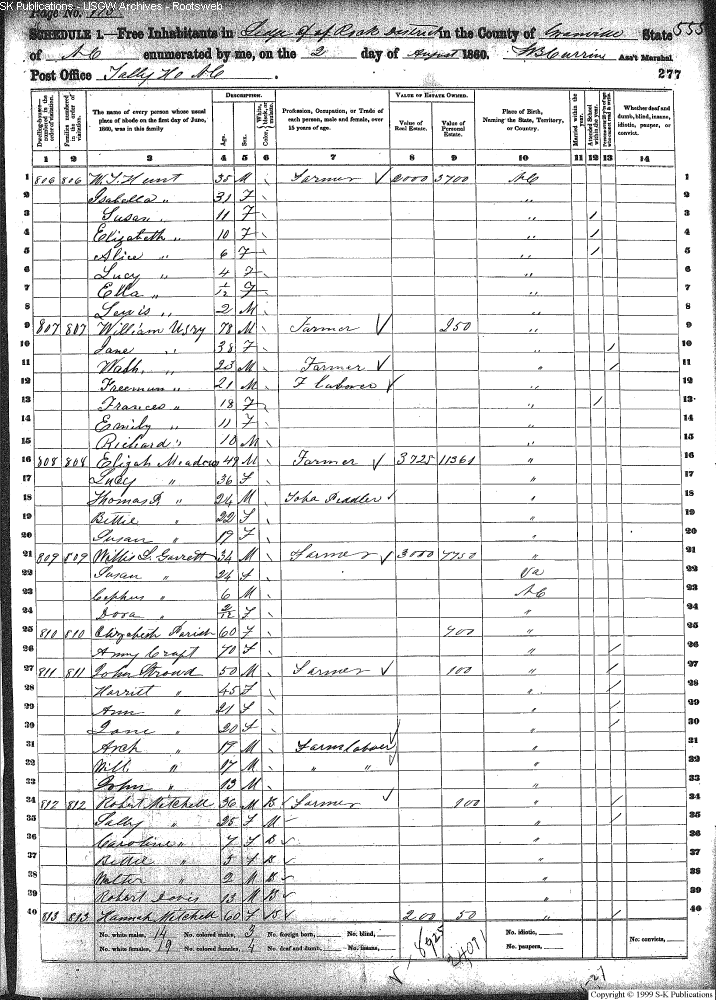 SK Publications - USGW Archives - Rootsweb
Page No. 110 555
SCHEDULE 1.—Free Inhabitants in Ledge of Rock District in the County of Granville State
of NC enumerated by me, on the 2 day of August 1860. Ass't Marshal
Post Office Tally Ho NC 277
DESCRIPTION. VALUE OF ESTATE OWNED.
Dwelling-houses—numbered in the order of visitation. Families numbered in the order of visitation. The name of every person whose usual place of abode on the first day of June, 1860, was in this family Age. Sex. Color, White, black, or mulatto. Profession, Occupation, or Trade of each person, male and female, over 15 years of age. Value of Real Estate. Value of Personal Estate. Place of Birth, Naming the State, Territory, or Country. Married within the year. Attended School within the year. Whether deaf and dumb, blind, insane, idiotic, pauper, or convict.
1 2 3 4 5 6 7 8 9 10 11 12 13 14
1 806 806 W. T. Hunt 35 M Farmer 2000 3700 NC 1
2 Isabella " 31 F " 2
3 Susan " 11 F " / 3
4 Elizabeth " 10 F " / 4
5 Alice " 6 F " / 5
6 Lucy " 4 F " 6
7 Ella " F " 7
8 Lewis " 2 M " 8
9 807 807 William Usry 78 M Farmer 250 " 9
10 Jane " 38 F " / 10
11 Wash " 23 M Farmer " / 11
12 Freeman " 21 M F Laborer " 12
13 Frances " 18 F " / 13
14 Emily " 11 F " 14
15 Richard " 10 M " 15
16 808 808 Elizah Meadows 49 M Farmer 3725 11361 " 16
17 Lucy " 36 F " 17
18 Thomas R " 24 M Toba Peddler " 18
19 Bettie " 22 F " 19
20 Susan " 19 F " 20
21 809 809 Willis L. Garrett 34 M Farmer 3000 7750 " 21
22 Susan " 24 F Va 22
23 Cephus " 6 M NC 23
24 Dora " 2/12 F " 24
25 810 810 Elizabeth Parish 60 F 400 " 25
26 Amy Craft 70 F " / 26
27 811 811 John Strowd 50 M Farmer 100 " / 27
28 Harriett " 45 F " / 28
29 Ann " 21 F " / 29
30 Jane " 20 F " / 30
31 Arch " 19 M Farm Labourer " 31
32 Will " 17 M " " " 32
33 John " 13 M " 33
34 812 812 Robert Mitchell 36 M B Farmer 100 " / 34
35 Sally " 25 F M " / 35
36 Caroline " 7 F B " 36
37 Bettie " 3 F B " 37
38 Walter " 2 M B " 38
39 Robert Davis 13 M B 39
40 813 813 Hannah Mitchell 60 F B 200 50 " / 40
No. white males, 14 No. colored males, 3 No. foreign born, No. blind, No. idiotic,
No. white females, 19 No. colored females, 4 No. deaf and dumb, No. insane, 8925 24091 No. paupers, No. convicts,
Copyright © 1999 S-K Publications